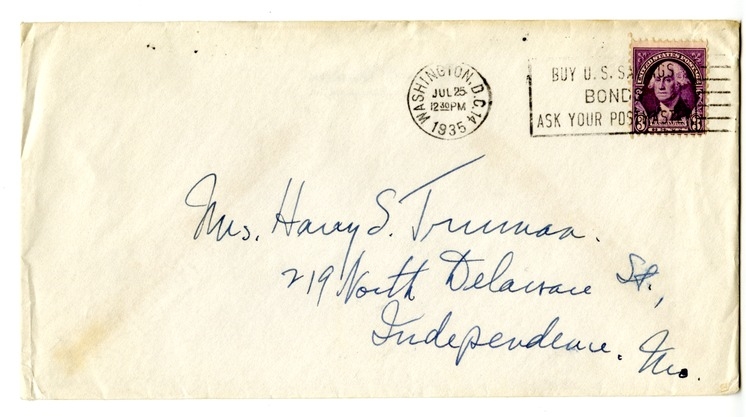 WASHINGTON, D.C. 14
JUL 25
12 30 PM
1935
BUY U.S. SAVINGS
BOND
ASK YOUR POST
UNITED STATES POSTAGE
3 3
Mrs. Harry S. Truman.
219 North Delaware St.,
Independence. Mo.